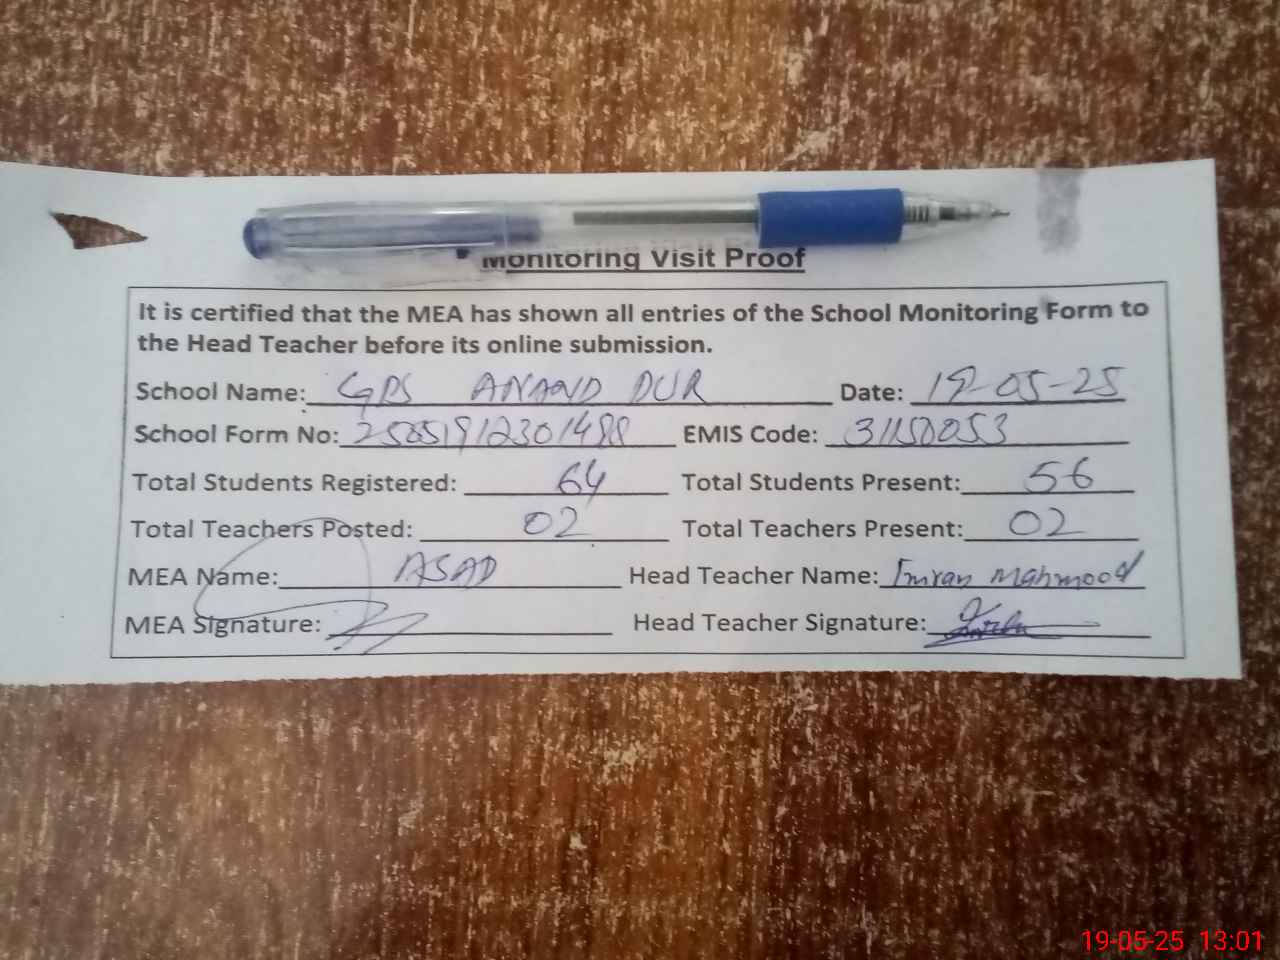 Monitoring Visit Proof
It is certified that the MEA has shown all entries of the School Monitoring Form to
the Head Teacher before its online submission.
School Name: GPS ANAND PUR Date: 19-05-25
School Form No: 25051912301488 EMIS Code: 31150053
Total Students Registered: 64 Total Students Present: 56
Total Teachers Posted: 02 Total Teachers Present: 02
MEA Name: ASAD Head Teacher Name: Imran Mahmood
MEA Signature: Head Teacher Signature:
19-05-25 13:01